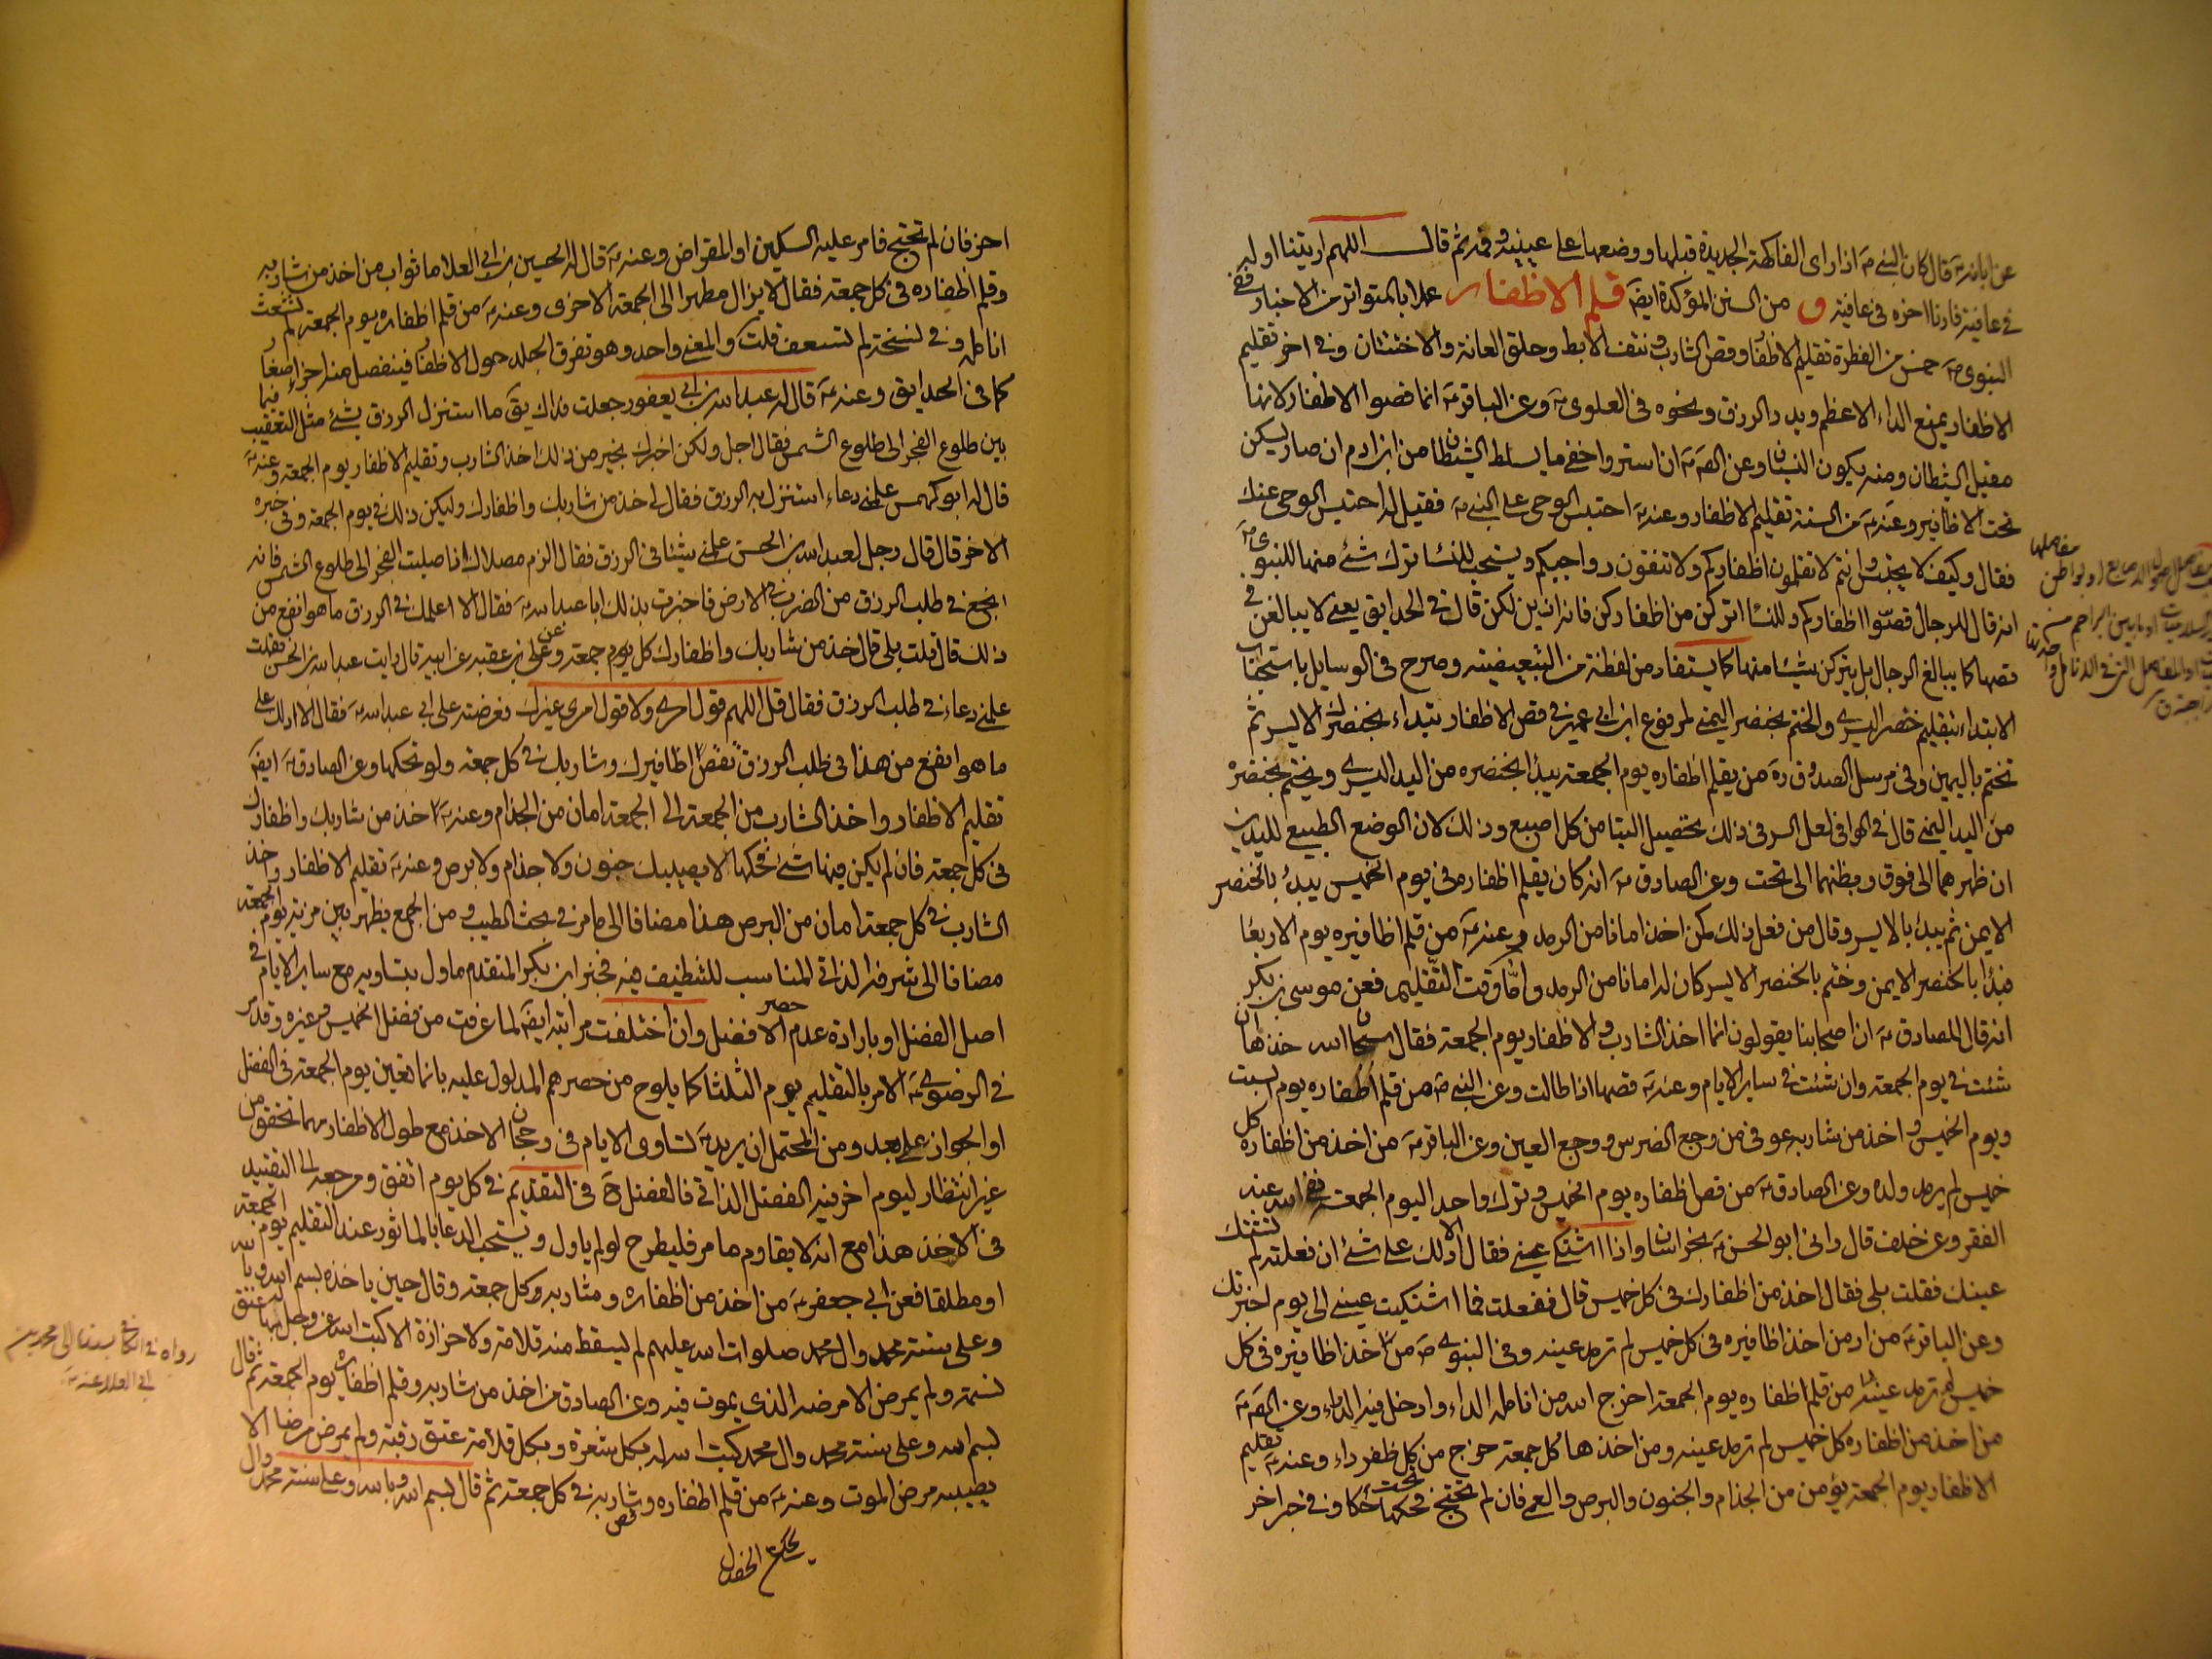 عن ابائه ع قال كان النبي ص اذا راى الفاكهة الجديدة قبلها ووضعها على عينيه وفمه ثم قال اللهم اريتنا اوله
في عافية فارنا اخره في عافية و من السنن المؤكدة ايضا قلم الاظفار عملا بالمتواتر من الاخبار ففي
النبوي ص خمس من الفطرة تقليم الاظفار وقص الشارب ونتف الابط وحلق العانة والاختتان وفي اخر تقليم
الاظفار يمنع الداء الاعظم ويدر الرزق ونحوه في العلوي ع وعن الباقر ع انما قصوا الاظفار لانها
مقيل الشيطان ومنه يكون النسيان وعن الص ع ان استر واخفى ما يسلط الشيطان من ابن ادم ان صار يسكن
تحت الاظافير وعنه ع من السنة تقليم الاظفار وعنه ع احتبس الوحي على النبي ص فقيل له احتبس الوحي عنك
فقال وكيف لا يحتبس وانتم لا تقلمون اظفاركم ولا تنقون رواجبكم ويستحب للنساء ترك شئ منها للنبوي ص
انه قال للرجال قصوا اظفاركم وللنساء اتركن من اظفاركن فانه ازين لكن قال في الحدايق يعني لا يبالغن في
قصها كما يبالغ الرجال بل يتركن شيئا منها كما يستفاد من لفظة من التبعيضية وصرح في الوسايل باستحباب
الابتداء بتقليم خنصر اليسرى والختم بخنصر اليمنى لمرفوع ابن ابي عمير في قص الاظفار تبداء بخنصرك الايسر ثم
تختم باليمين وفي مرسل الصدوق ره من يقلم اظفاره يوم الجمعة يبدأ بخنصره من اليد اليسرى ويختم بخنصره
من اليد اليمنى قال في الوافي لعل السر في ذلك تحصيل التيامن كل اصبع وذلك لان الوضع الطبيعي لليدين
ان ظهرهما الى فوق وبطنهما الى تحت وعن الصادق ع انه كان يقلم اظفاره في يوم الخميس يبدأ بالخنصر
الايمن ثم يبدأ بالايسر وقال من فعل ذلك كمن اخذ امانا من الرمد وعنه ع من قلم اظافيره يوم الاربعا
فبدا بالخنصر الايمن وختم بالخنصر الايسر كان له امانا من الرمد واما وقت التقليم فعن موسى بن بكر
انه قال للصادق ع ان اصحابنا يقولون انما اخذ الشارب والاظفار يوم الجمعة فقال سبحان الله خذها ان
شئت في يوم الجمعة وان شئت في ساير الايام وعنه ع قصها اذا طالت وعن النبي ص من قلم اظفاره يوم السبت
ويوم الخميس واخذ من شاربه عوفي من وجع الضرس ووجع العين وعن الباقر ع من اخذ من اظفاره كل
خميس لم يرمد ولده وعن الصادق ع من قص اظفاره يوم الخميس وترك واحد اليوم الجمعة نفى الله عنه
الفقر وعن خلف قال رانى ابو الحسن ع بخراسان وانا اشتكي عيني فقال الا ادلك على شئ ان فعلته لم تشتك
عينك فقلت بلى فقال اخذ من اظفارك في كل خميس قال ففعلت فما اشتكيت عيني الى يوم اخبرتك
وعن الباقر ع من ادمن اخذ اظافيره في كل خميس لم ترمد عينه وفي النبوي ص من اخذ اظافيره في كل
خميس لم ترمد عيناه من قلم اظفاره يوم الجمعة اخرج الله من انامله الداء وادخل فيه الدواء وعن الص ع
من اخذ من اظفاره كل خميس لم ترمد عينه ومن اخذها كل جمعة خرج من كل ظفر داء وعنه ع تقليم
الاظفار يوم الجمعة يؤمن من الجذام والجنون والبرص والعمى فان لم تحتج فحكها حكا وفي خبر اخر
احز فان لم تحتج فامر عليه السكين او المقراض وعنه ع قال له الحسين بن ابي العلا ما ثواب من اخذ من شاربه
وقلم اظفاره في كل جمعة فقال لا يزال مطهرا الى الجمعة الاخرى وعنه ع من قلم اظفاره يوم الجمعة لم تشعث
انامله وفي نسخة لم تسعف قلت والمعنى واحد وهو تفرق الجلد حول الاظفار فينفصل منه اجزاء صغار
كما في الحدايق وعنه ع قال له عبد الله بن ابي يعفور جعلت فداك يق ما استنزل الرزق بشئ مثل التعقيب فيما
بين طلوع الفجر الى طلوع الشمس فقال اجل ولكن اخبرك بخير من ذلك اخذ الشارب وتقليم الاظفار يوم الجمعة وعنه ع
قال له ابو كهمس علمني دعاء استنزل به الرزق فقال لي خذ من شاربك واظفارك وليكن ذلك في يوم الجمعة وفي خبره
الاخر قال قال رجل لعبد الله بن الحسن علمني شيئا في الرزق فقال الزم مصلاك اذا صليت الفجر الى طلوع الشمس فانه
انجع في طلب الرزق من الضرب في الارض فاخبرت بذلك ابا عبد الله ع فقال الا اعلمك في الرزق ما هو انفع من
ذلك قال قلت بلى قال خذ من شاربك واظفارك كل يوم جمعة وعن علي بن عقبه عن ابيه قال رايت عبد الله بن الحسن فقلت
علمني دعاء في طلب الرزق فقال قل اللهم تول امري ولا تول امري غيرك فعرضته على ابي عبد الله ع فقال الا ادلك على
ما هو انفع من هذا في طلب الرزق تقص اظافيرك وشاربك في كل جمعة ولو بحكها وعن الصادق ع ايضا
تقليم الاظفار واخذ الشارب من الجمعة الى الجمعة امان من الجذام وعنه ع خذ من شاربك واظفارك
في كل جمعة فان لم يكن فيها شئ فحكها لا يصيبك جنون ولا جذام ولا برص وعنه ع تقليم الاظفار واخذ
الشارب في كل جمعة امان من البرص هذا مضافا الى ما مر في بحث الطيب ومن الجمع يظهر مزية يوم الجمعة
مضافا الى شرفه الذاتي المناسب للتنظيف فيه فخبر ابن بكر المتقدم ماول بتساويه مع ساير الايام في
اصل الفضل او بارادة عدم حصر الافضل وان اختلفت مراتبه ايضا لما عرفت من فضل الخميس وغيره وقد مر
في الرضوي ع الامر بالتقليم يوم الثلثا كما يلوح من حصرهم المدلول عليه بانما تعين يوم الجمعة في الفضل
او الجواز على بعد ومن المحتمل ان يريد ع تساوى الايام في رجحان الاخذ مع طول الاظفار مهما تحقق من
غير انتظار ليوم اخر فيه الفضل الذاتي فالفضل ح في التقديم في كل يوم اتفق ومرجعه الى التقييد
في الاخذ هذا مع انه لا يقاوم ما مر فليطرح لو لم ياول ويستحب الدعا بالماثور عند التقليم يوم الجمعة
او مطلقا فعن ابي جعفر ع من اخذ من اظفاره وشاربه كل جمعة وقال حين ياخذه بسم الله وبالله
وعلى سنة محمد وال محمد صلوات الله عليهم لم يسقط منه قلامة ولا جزازة الا كتب الله عز وجل له بها عتق
نسمة ولم يمرض الا مرضه الذي يموت فيه وعن الصادق من اخذ من شاربه وقلم اظفاره يوم الجمعة ثم قال
بسم الله وعلى سنة محمد وال محمد كتب الله له بكل شعرة وبكل قلامة عتق رقبة ولم يمرض مرضا الا
يصيبه مرض الموت وعنه ع من قلم اظفاره وقص شاربه في كل جمعة ثم قال بسم الله وبالله وعلى سنة محمد وال
رواه في الكافي بسنده الى محمد بن
ابي العلا عنه ع